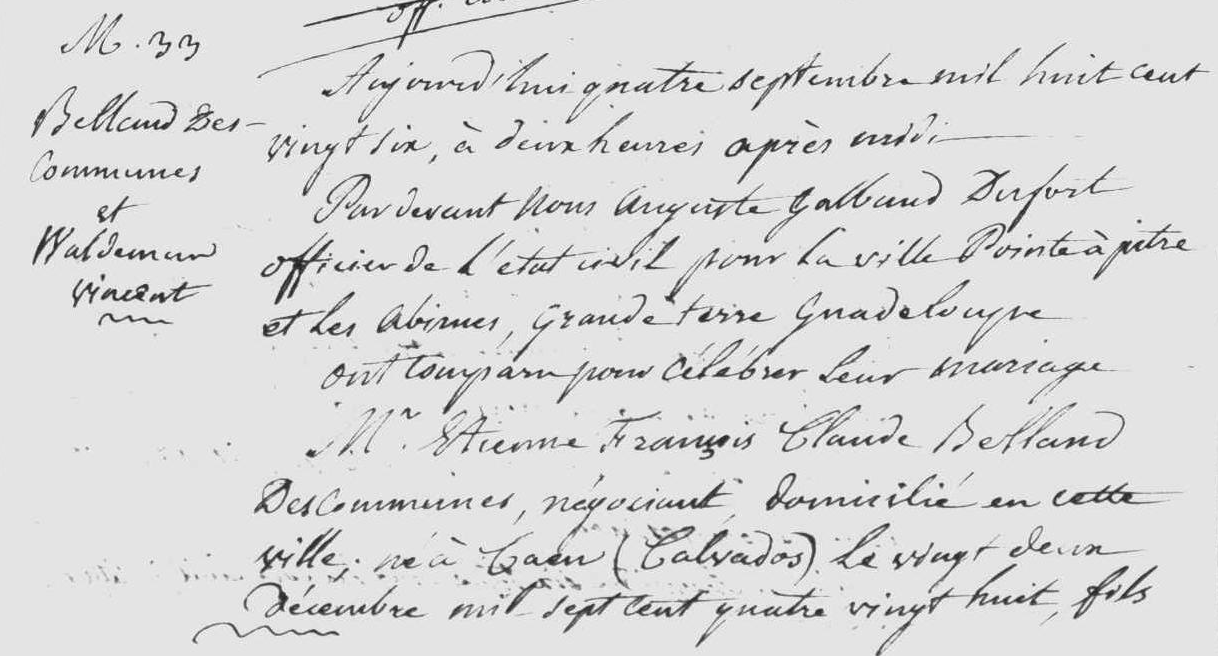 off.
M. 33
Belland Des-
Communes
et
Waldemar
Vincent
Aujourd'hui quatre septembre mil huit cent
vingt six, à deux heures après midi
Pardevant Nous Auguste Galbaud Dufort
officier de l'état civil pour la ville Pointe à pitre
et les Abimes, Grande terre Guadeloupe
ont comparu pour célébrer leur mariage
Mr. Etienne François Claude Belland
DesCommunes, négociant, domicilié en cette
ville, né à Caen (Calvados) le vingt deux
Décembre mil sept cent quatre vingt huit, fils